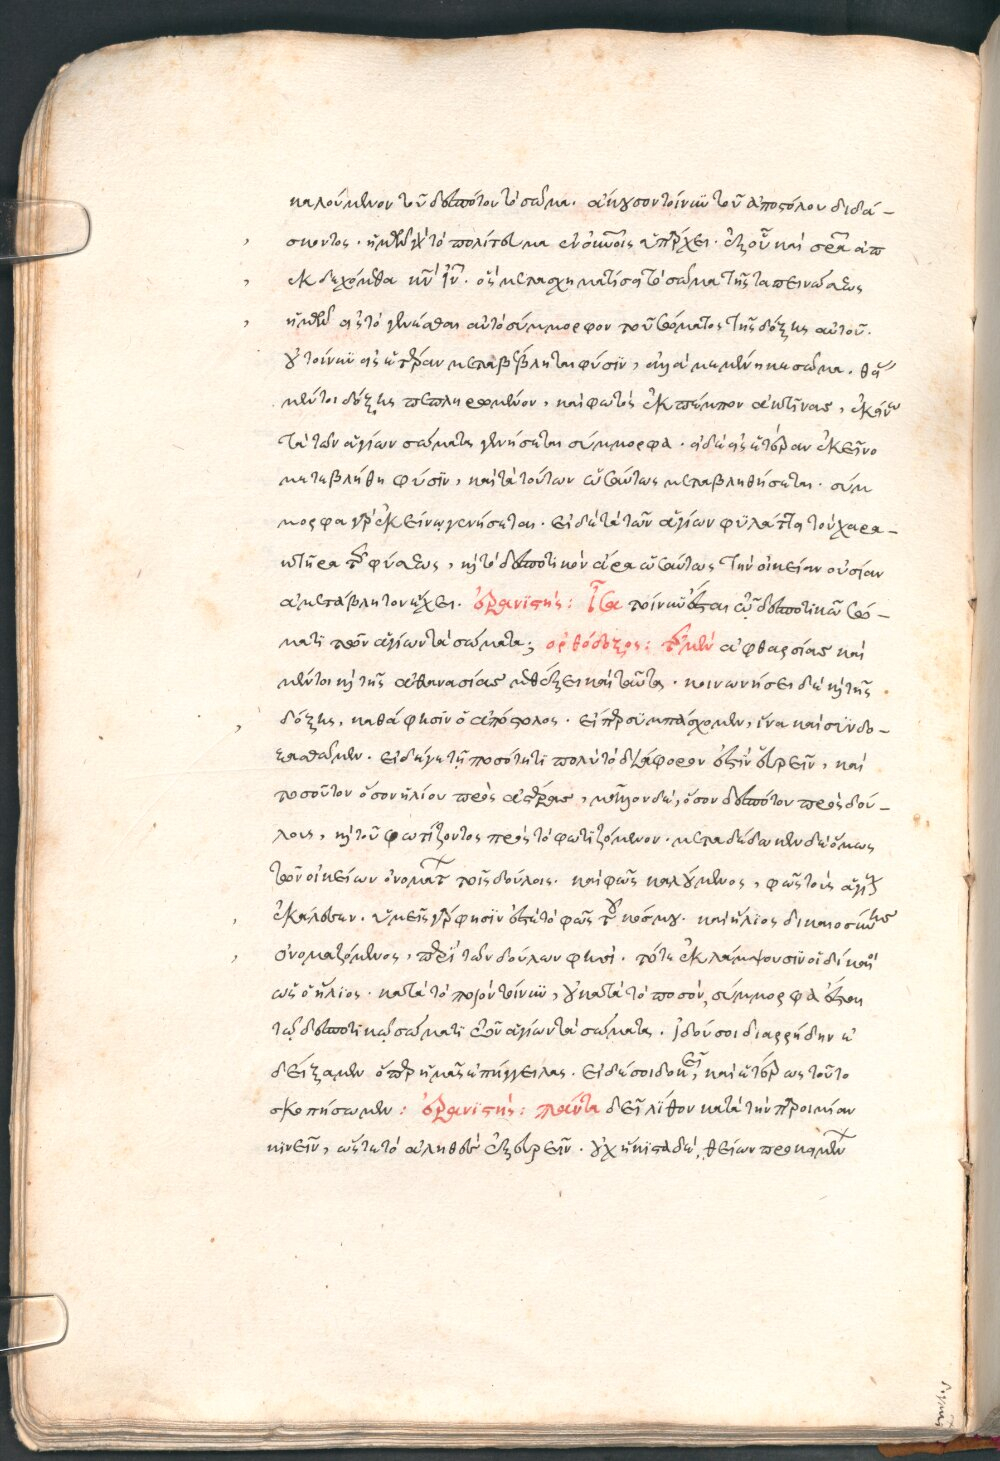 καλούμενον τοῦ δεσπότου τὸ σῶμα. ἄκουσον τοίνυν τοῦ ἀποστόλου διδά-
σκοντος. ἡμῶν γὰρ τὸ πολίτευμα ἐν οὐνοῖς ὑπάρχει. ἐξ οὗ καὶ σρα ἀπ
εκδεχόμεθα κν ιν. ὃς μετασχηματίσει τὸ σῶμα τῆς ταπεινώσεως
ἡμῶν εἰς τὸ γενέσθαι αὐτὸ σύμμορφον τοῦ σώματος τῆς δόξης αὐτοῦ.
οὐ τοίνυν εἰς ἑτέραν μεταβέβληται φύσιν, ἀλλὰ μεμένηκε σῶμα. θεί
μέντοι δόξης πεπληρωμένον, καὶ φωτὸς ἐκπέμπον ἀκτῖνας, ἐκείνω
τὰ τῶν ἁγίων σώματα γενήσεται σύμμορφα. εἰ δὲ εἰς ἑτέραν ἐκεῖνο
μετεβλήθη φύσιν, καὶ τὰ τούτων ὡσαύτως μεταβληθήσεται. σύμ
μορφα γὰρ ἐκείνω γενήσεται. εἰ δὲ τὰ τῶν ἁγίων φυλάττει τὸν χαρα-
κτῆρα τῆς φύσεως, καὶ τὸ δεσποτικὸν ἄρα ὡσαύτως τὴν οἰκείαν οὐσίαν
ἀμετάβλητον ἔχει. ἐρανιστής: ἶσα τοίνυν ἔσται τῶ δεσποτικῶ σώ-
ματι τῶν ἁγίων τὰ σώματα; ὀρθόδοξος: τῆς μὲν ἀφθαρσίας καὶ
μέντοι καὶ τῆς ἀθανασίας μεθέξει καὶ ταῦτα. κοινωνήσει δὲ καὶ τῆς
δόξης, καθά φησιν ὁ ἀπόστολος. εἴπερ συμπάσχομεν, ἵνα καὶ συνδο-
ξασθῶμεν. ἐν δέ γε τῇ ποσότητι πολὺ τὸ διάφορον ἔστιν εὑρεῖν, καὶ
τοσοῦτον ὅσον ἡλίου πρὸς ἀστέρας, μᾶλλον δέ, ὅσον δεσπότου πρὸς δού-
λους, καὶ τοῦ φωτίζοντος πρὸς τὸ φωτιζόμενον. μεταδέδωκεν δὲ ὅμως
τῶν οἰκείων ὀνομάτ τοῖς δούλοις. καὶ φῶς καλούμενος, φῶς τοὺς ἁγί
ἐκάλεσεν. ὑμεῖς γάρ φησιν ἐστὲ τὸ φῶς τοῦ κόσμου. καὶ ἥλιος δικαιοσύνης
ὀνομαζόμενος, περὶ τῶν δούλων φησί. τότε ἐκλάμψουσιν οἱ δίκαιοι
ὡς ὁ ἥλιος. κατὰ τὸ ποιὸν τοίνυν, οὐ κατὰ τὸ ποσόν, σύμμορφα ἔσται
τῷ δεσποτικῷ σώματι τῶν ἁγίων τὰ σώματα. ἰδού σοι διαρρήδην ἐ
δείξαμεν ὅπερ ἡμᾶς ἐπήγγειλας. εἰ δέ σοι δοκεῖ, καὶ ἑτέρως τοῦτο
σκοπήσωμεν: ἐρανιστής: πάντα δεῖ λίθον κατὰ τὴν παροιμίαν
κινεῖν, ὥστε τὸ ἀληθὲς ἐξευρεῖν. οὐχ ἥκιστα δέ, θείων προκειμέν